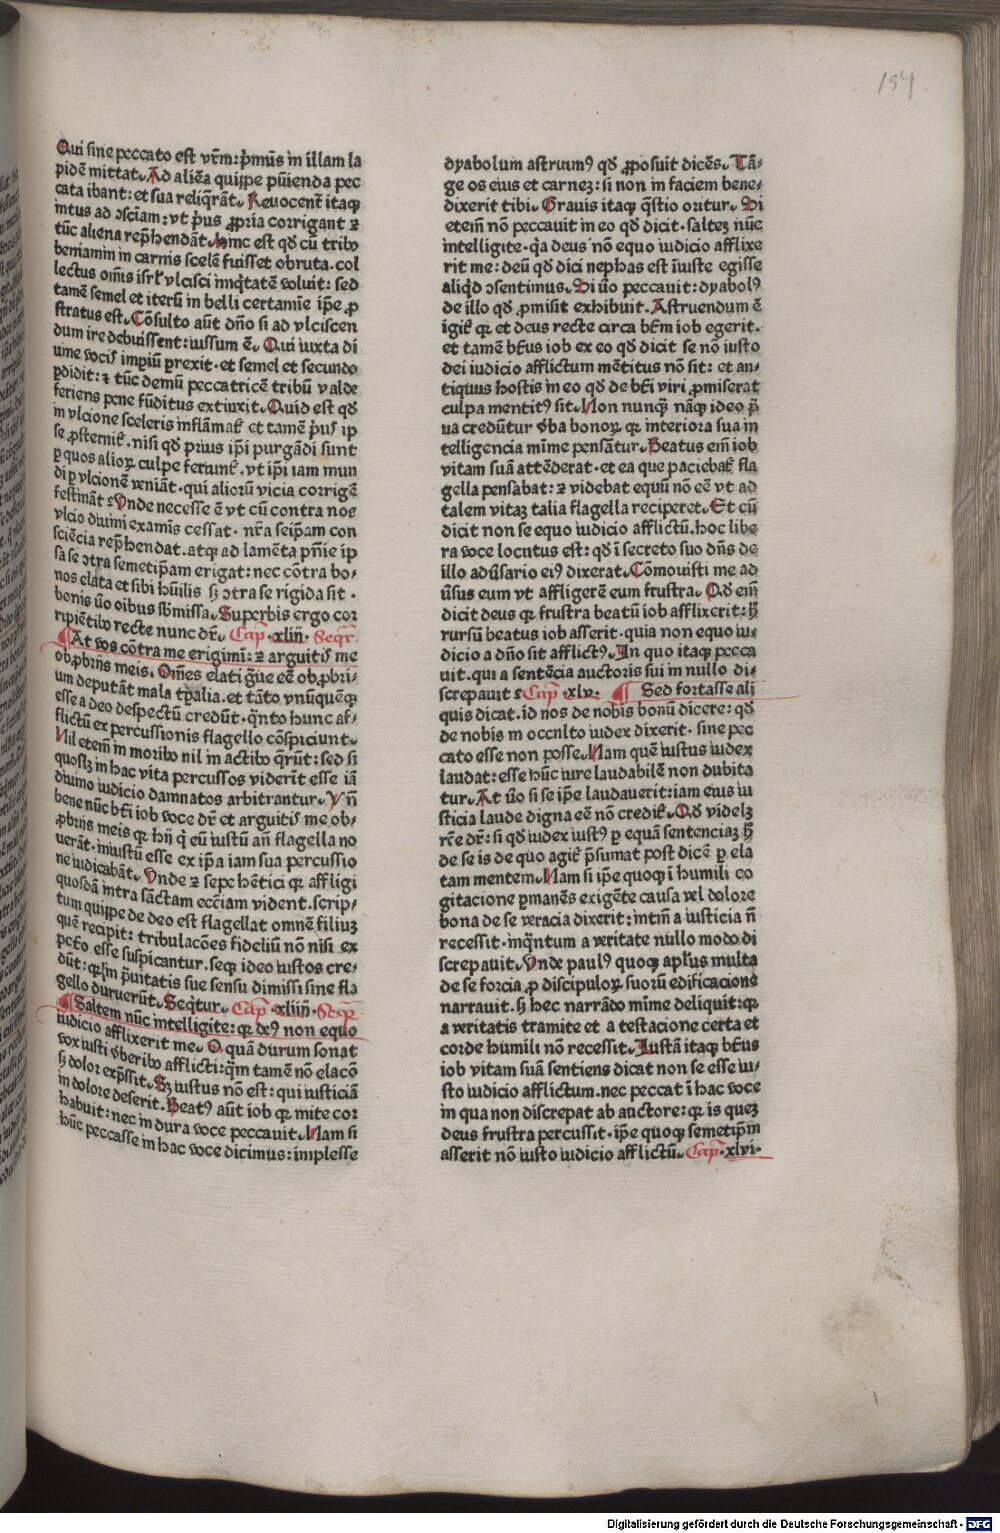 154
Qui sine peccato est vr̄m: p̄mus in illam la
pidē mittat. Ad aliēa quippe pūienda pec
cata ibant: et sua reliq̄rāt. Reuocent̄ itaqꝫ
intus ad ↄsciam: vt p̄us ꝓpria corrigant ⁊
tūc aliena rep̄hendāt. hinc est qd̛ cū tribꝰ
beniamin in carnis scelē fuisset obruta. col
lectus om̄is isrl̛ vlcisci inqͥtatē voluit: sed
tamē semel et iterū in belli certamie ip̄e ꝓ
stratus est. Cōsulto aūt dn̄o si ad vlciscen
dum ire debuissent: iussum ē. Qui iuxta di
uine vocis impiū ꝑrexit. et semel et secundo
ꝑdidit: ⁊ tūc demū peccatricē tribū valde
feriens pene fūditus extinxit. Quid est qd̛
in vlcione sceleris inflāmat̛ et tamē p̄us ip
se ꝓsternit̛. nisi qd̛ prius ip̄i purgādi sunt
ꝑ quos alioꝝ culpe feriunt̛. vt ip̄i iam mun
di ꝑ vlcionē veniāt. qui aliorū vicia corrigē
festināt ꝛ Vnde necesse ē vt cū contra nos
vlcio diuini examīs cessat. nr̄a seip̄am con
sciēcia rep̄hendat. atqꝫ ad lamēta pn̄ie ip
sa se ↄtra semetip̄am erigat: nec cōtra bo⸗
nos elata et sibi hūilis sꝫ ↄtra se rigida sit.
bonis ūo oibus sb̄missa. Superbis ergo cor
ripiētibꝰ recte nunc dr̄. Cap̄. xliii. Seqr̄
¶ At vos cōtra me erigimī: ⁊ arguitis me
ob ꝓbriis meis. Om̄es elati gͣue eē obꝓbri⸗
um deputāt mala tp̄alia. et tāto vnūquēqꝫ
esse a deo despectū credūt. qͣnto hunc af⸗
flictū ex percussionis flagello cōspiciunt.
Nil etem̄ in moribꝰ nil in actibꝰ q̄rūt: sed si
quoslꝫ in hac vita percussos viderit esse iā
diuino iudicio damnatos arbitrantur. Vn̄
bene nūc bt̄i iob voce dr̄ et arguitis me ob⸗
ꝓbriis meis qꝛ hij q̛ eū iustū an̄ flagella no
uerāt. iniustū esse ex ip̄a iam sua percussio
ne iudicabāt. Vnde ⁊ sepe hētici qꝛ affligi
quosdā intra sāctam ecc̄iam vident. scrip⸗
tum quippe de deo est flagellat omnē filiuꝫ
quē recipit: tribulacōes fideliū nō nisi ex
pctō esse suspicantur. seqꝫ ideo iustos cre⸗
dūt: qꝛ in p̄uitatis sue sensu dimissi sine fla
gello duruerūt. Seqͥtur. Cap̄. xliiii. Seqr̄
¶ Saltem nūc intelligite: qꝛ deꝰ non equo
iudicio afflixerit me. O quā durum sonat
vox iusti v̛beribꝰ afflicti: q̄m tamē nō elacō
sꝫ dolor exp̄ssit. Sꝫ iustus nō est: qui iusticiā
in dolore deserit. Beatꝰ aūt iob qꝛ mite cor
habuit: nec in dura voce peccauit. Nam si
hūc peccasse in hac voce dicimus: implesse
dyabolum astruimꝰ qd̛ ꝓposuit dicēs. Tā⸗
ge os eius et carneꝫ: si non in faciem bene⸗
dixerit tibi. Grauis itaqꝫ q̄stio oritur. Si
etem̄ nō peccauit in eo qd̛ dicit. salteꝫ nūc
intelligite. qͥa deus nō equo iudicio afflixe
rit me: deū qd̛ dici nephas est iīuste egisse
aliqͥd ↄsentimus. Si ūo peccauit: dyabolꝰ
de illo qd̛ ꝓmisit exhibuit. Astruendum ē
igit̛ qꝛ et deus recte circa bt̄m iob egerit.
et tamē bt̄us iob ex eo qd̛ dicit se nō iusto
dei iudicio afflictum mētitus nō sit: et an⸗
tiquus hostis in eo qd̛ de bt̄i viri ꝓmiserat
culpa mentitꝰ sit. Non nunqͣꝫ nāqꝫ ideo p̄
ua credūtur v̛ba bonoꝝ qꝛ interiora sua in
telligencia mīme pensātur. Beatus em̄ iob
vitam suā attēderat. et ea que paciebat̛ fla
gella pensabat: ⁊ videbat equū nō eē vt ad
talem vitaꝫ talia flagella reciperet. Et cū
dicit non se equo iudicio afflictū. hoc libe
ra voce locutus est: qd̛ ī secreto suo dn̄s de
illo adūsario eiꝰ dixerat. Cōmouisti me ad
ūsus eum vt affligerē eum frustra. Qd̛ em̄
dicit deus qꝛ frustra beatū iob afflixerit: hͦ
rursū beatus iob asserit. quia non equo iu⸗
dicio a dn̄o sit afflictꝰ. In quo itaqꝫ pecca
uit. qui a sentēcia auctoris sui in nullo di⸗
screpauit ꝛ Cap̄. xlv. ¶ Sed fortasse ali
quis dicat. id nos de nobis bonū dicere: qd̛
de nobis in occulto iudex dixerit. sine pec
cato esse non posse. Nam quē iustus iudex
laudat: esse hūc iure laudabilē non dubita
tur. At ūo si se ip̄e laudauerit: iam eius iu
sticia laude digna eē nō credit̛. Qd̛ videlꝫ
rc̄e dr̄: si qd̛ iudex iustꝰ ꝑ equā sentenciaꝫ hͦ
de se is de quo agit̛ p̄sumat post dicē ꝑ ela
tam mentem. Nam si ip̄e quoqꝫ ī humili co
gitacione ꝑmanēs exigēte causa vel dolore
bona de se veracia dixerit: intm̄ a iusticia n̄
recessit. inqͣntum a veritate nullo modo di
screpauit. Vnde paulꝰ quoqꝫ apl̛us multa
de se forcia ꝓ discipuloꝝ suorū edificacione
narrauit. sꝫ hec narrādo mīme deliquit: qꝛ
a veritatis tramite et a testacione certa et
corde humili nō recessit. Iustā itaqꝫ bt̄us
iob vitam suā sentiens dicat non se esse iu⸗
sto iudicio afflictum. nec peccat ī hac voce
in qua non discrepat ab auctore: qꝛ is queꝫ
deus frustra percussit. ip̄e quoqꝫ semetip̄m
asserit nō iusto iudicio afflictū. Cap̄. xlvi.
Digitalisierung gefördert durch die Deutsche Forschungsgemeinschaft - DFG